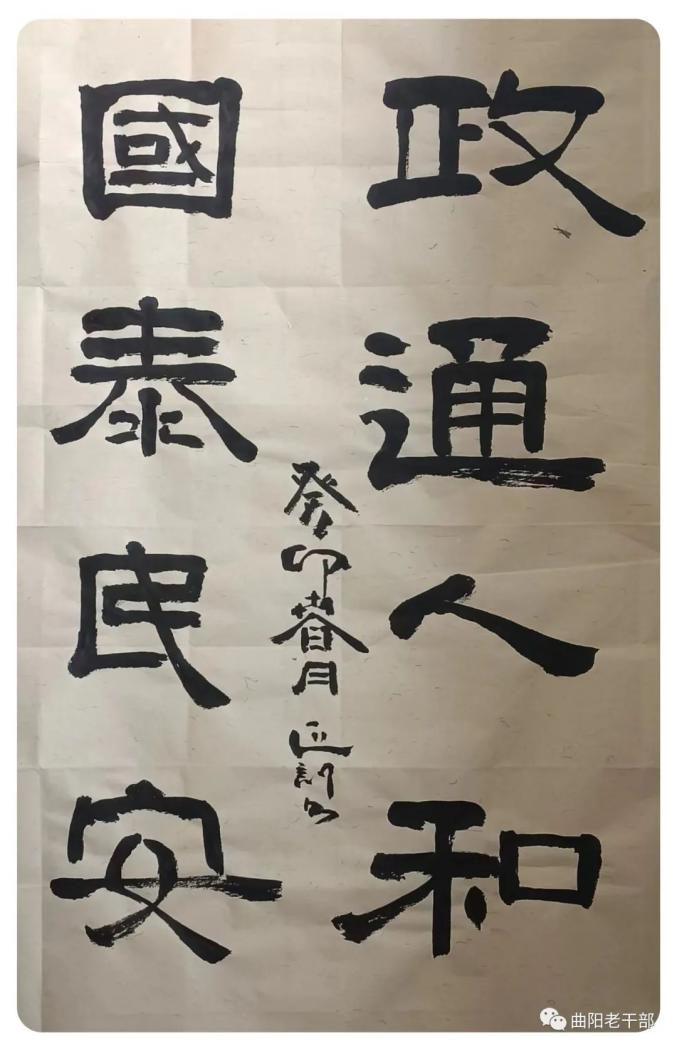 政通人和
國泰民安
癸卯春月
曲阳老干部